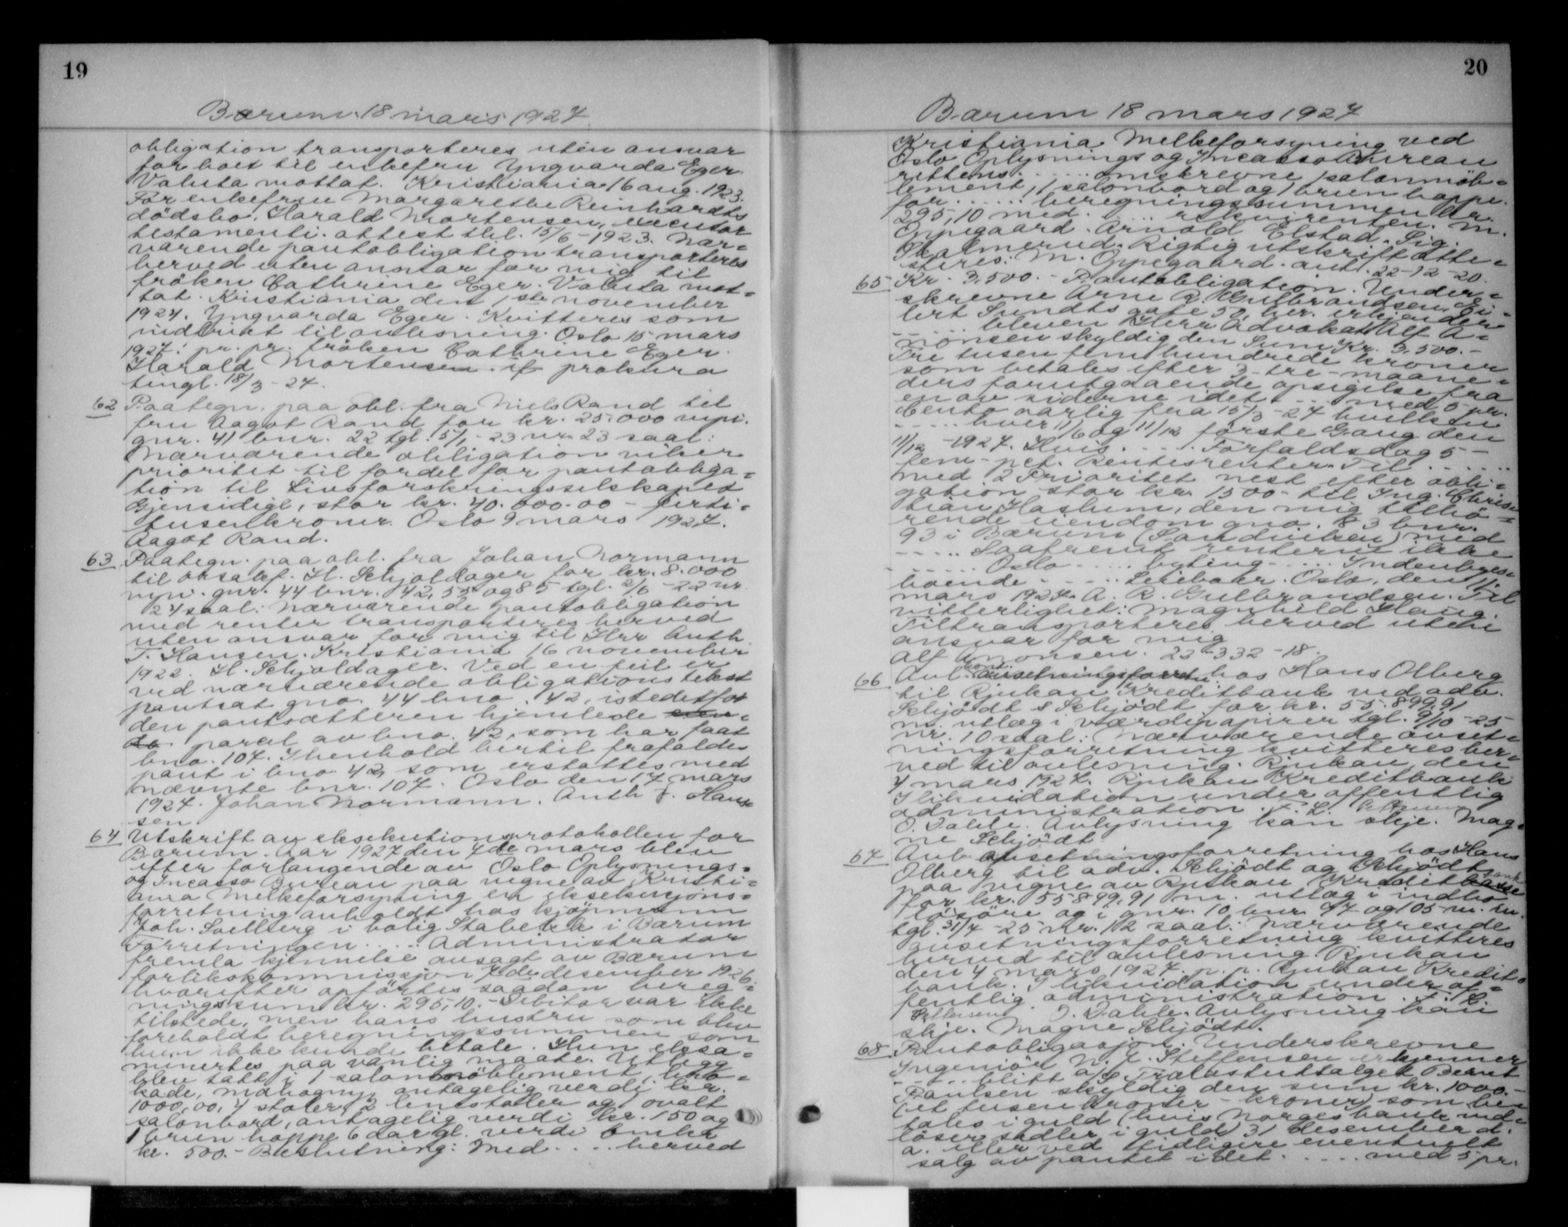 19
Bærum 18 mars 1927.
obligation transporteres uten ansvar
for bort til enkefru Yngvarda Eger.
Valuta mottat. Kristiania 16 aug. 1923.
For enkefrue Margarethe Reinhardts
dødsbo. Harald Mortensen, executor
testamenti. attest tkl. 15/6-1923. Nær-
værende pantobligation transporteres
herved uten ansvar for mig til
frøken Cathrine Eger. Valuta mot-
tat. Kristiania den 1ste november
1924. Yngvarda Eger. Kvitteres som
indfriet til avlesning. Oslo 15 mars
1927. pr. pr. frøken Cathrine Eger.
Harald Mortensen if prokura
tingl. 18/3-24.
62 Paategn. paa obl. fra Niels Rand til
fru Aagot Rand for kr. 25.000 mpi.
gnr. 41 bnr. 22 tgl. 5/1-23 nr. 23 saal:
Nærværende obligation viker
prioritet til fordel for pantobliga-
tion til Livsforsikringsselskapet
Gjensidige, stor kr. 40.000.00 - firti-
tusen kroner. Oslo 9 mars 1927.
Aagot Rand.
63 Paategn. paa obl. fra Johan Normann
til oksakf. H. Schjoldager for kr. 8.000
mpi. gnr. 44 bnr. 42, 53 og 85 tgl. 1/6-22 nr.
24 saal: Nærværende pantobligation
med renter transporteres herved
uten ansvar for mig til Hrr Anth.
F. Hansen. Kristiania 16 november
1922. H. Schjoldager. Ved en feil er
ved nærværende obligations tekst
pantsat gno. 44 bno. 42, istedetfor
den pantsætteren hjemlede
parcel av bno. 42, som har faat
bno. 107. I henhold hertil frafaldes
pant i bno 42, som erstattes med
nævnte bnr. 107. Oslo den 17 mars
1927. Johan Normann. Anth F. Han-
sen
64 Utskrift av eksekutionsprotokollen for
Bærum. Aar 1927 den 7de mars blev
efter forlangende av Oslo Oplysnings-
og Incasso Bureau paa vegne av Kristi-
ania Melkeforsyning en eksekusjons-
forretning avholdt hos kjøpmann
Joh. Sællberg i bolig Stabekk i Bærum
Forretningen .... Administrator
fremla kjennelse avsagt av Bærum
forlikskommissjon 7de desember 1926
hvorefter opførtes saadan bereg-
ningssum kr. 295,10. - Debitor var ikke
tilstede, men hans hustru som blev
foreholdt beregningssummen som
hun ikke kunde betale. Hun
minertes paa vanlig maate. Utlegg
blev tatt i 1 salonmøblement
kade, mahogny, antagelig verdi kr.
1000,00, 4 stoler, 2 lenestoler og 1 ovalt
salonbord, antagelig verdi kr. 150 og
1 brun hoppe 6 aar gl. verdi
kr. 500. - Beslutning: Med .... herved
20
Bærum 18 mars 1927
Kristiania Melkeforsyning ved
Oslo Oplysnings og Incasso Bureau
rettens .... omskrevne 1 salonmøb-
lement, 1 salonbord og 1 brun hoppe
for ...... beregningssummen kr.
295,10 med .... Oslo
Oppegaard. Arnold Elstad. Sig.
Skallerud. Rigtig utskrift atte-
steres: M. Oppegaard. aut. 22-12-20.
65 Kr. 3.500. - Pantobligation. Under-
skrevne Arne R. Gulbrandsen, Ei-
lert Sundts gate 50, her. erkjender
..... bleven Herr Advokat Alf A-
monsen skyldig den Sum Kr. 3.500. -
Tre tusen fem hundrede kroner
som betales efter 3 - tre - maane-
ders forutgaaende opsigelse fra
en av siderne idet .... med 5 pr.
cento aarlig fra 15/3-27 hvilken
...... hver 11/6 og 11/12 første Gang den
11/12-1927. Hvis .... Forfaldsdag 5 -
fem - pct. Rentesrenter. Til ....
med 2 Prioritet nest efter obli-
gation stor kr. 1500. - til Ing. Chris-
tian Haslum, den mig tilhø-
rende eiendom gno. 3 bnr.
93 i Bærum med
..... Saafremt renterne ikke
..... Oslo .... byting .... Indenbyes-
boende ..... Leiebohr. Oslo, den 11.
mars 1927. A. R. Gulbrandsen. Til
vitterlighet: Magnhild Haug
Tiltransporteres herved uten
ansvar for mig
Alf Amonsen. 22-332-18.
66 Avl. hos Hans Olberg
til Rjukan Kreditbank ved adv.
Schjødt & Schjødt for kr. 55.899,91
m. utlæg i værdipapirer tgl. 9/10-25
nr. 10 saal: Nærværende avset-
ningsforretning kvitteres her-
ved til avlesning. Rjukan, den
4 mars 1927. Rjukan Kreditbank
I likvidation under offentlig
administration. F. L.
O. Dahle. Avlysning kan skje. Mag-
ne Schjødt
67 Avl. avsetningsforretning hos Hans
Olberg til adv. Schjødt og Schjødt
paa vegne av Rjukan Kreditbank
for kr. 55.899,91 m. utlæg i indbo
løsøre og i gnr. 10 bnr. 47 og 105 m. m.
tgl. 31/7-25 nr. 12 saal: Nærværende
avsetningsforretning kvitteres
herved til avlesning. Rjukan
den 4 mars 1927 p. p. Rjukan Kredit-
bank. I likvidation under of-
fentlig administration. F. L.
O. Dahle. Avlysning kan
skje. Magne Schjødt.
68 Pantobligasjon. Underskrevne
Ingeniør W. L. Steffensen erkjenner
.... blitt A/S Trælastutsalget Bernt
Paulsen skyldig den sum kr. 1000.-
(et tusen kroner - kroner) som be-
tales i guld (hvis Norges bank ind-
løser sedler i guld) 31 desember d.
a. eller ved tidligere eventuelt
salg av pantet idet ..... med 5 pr.